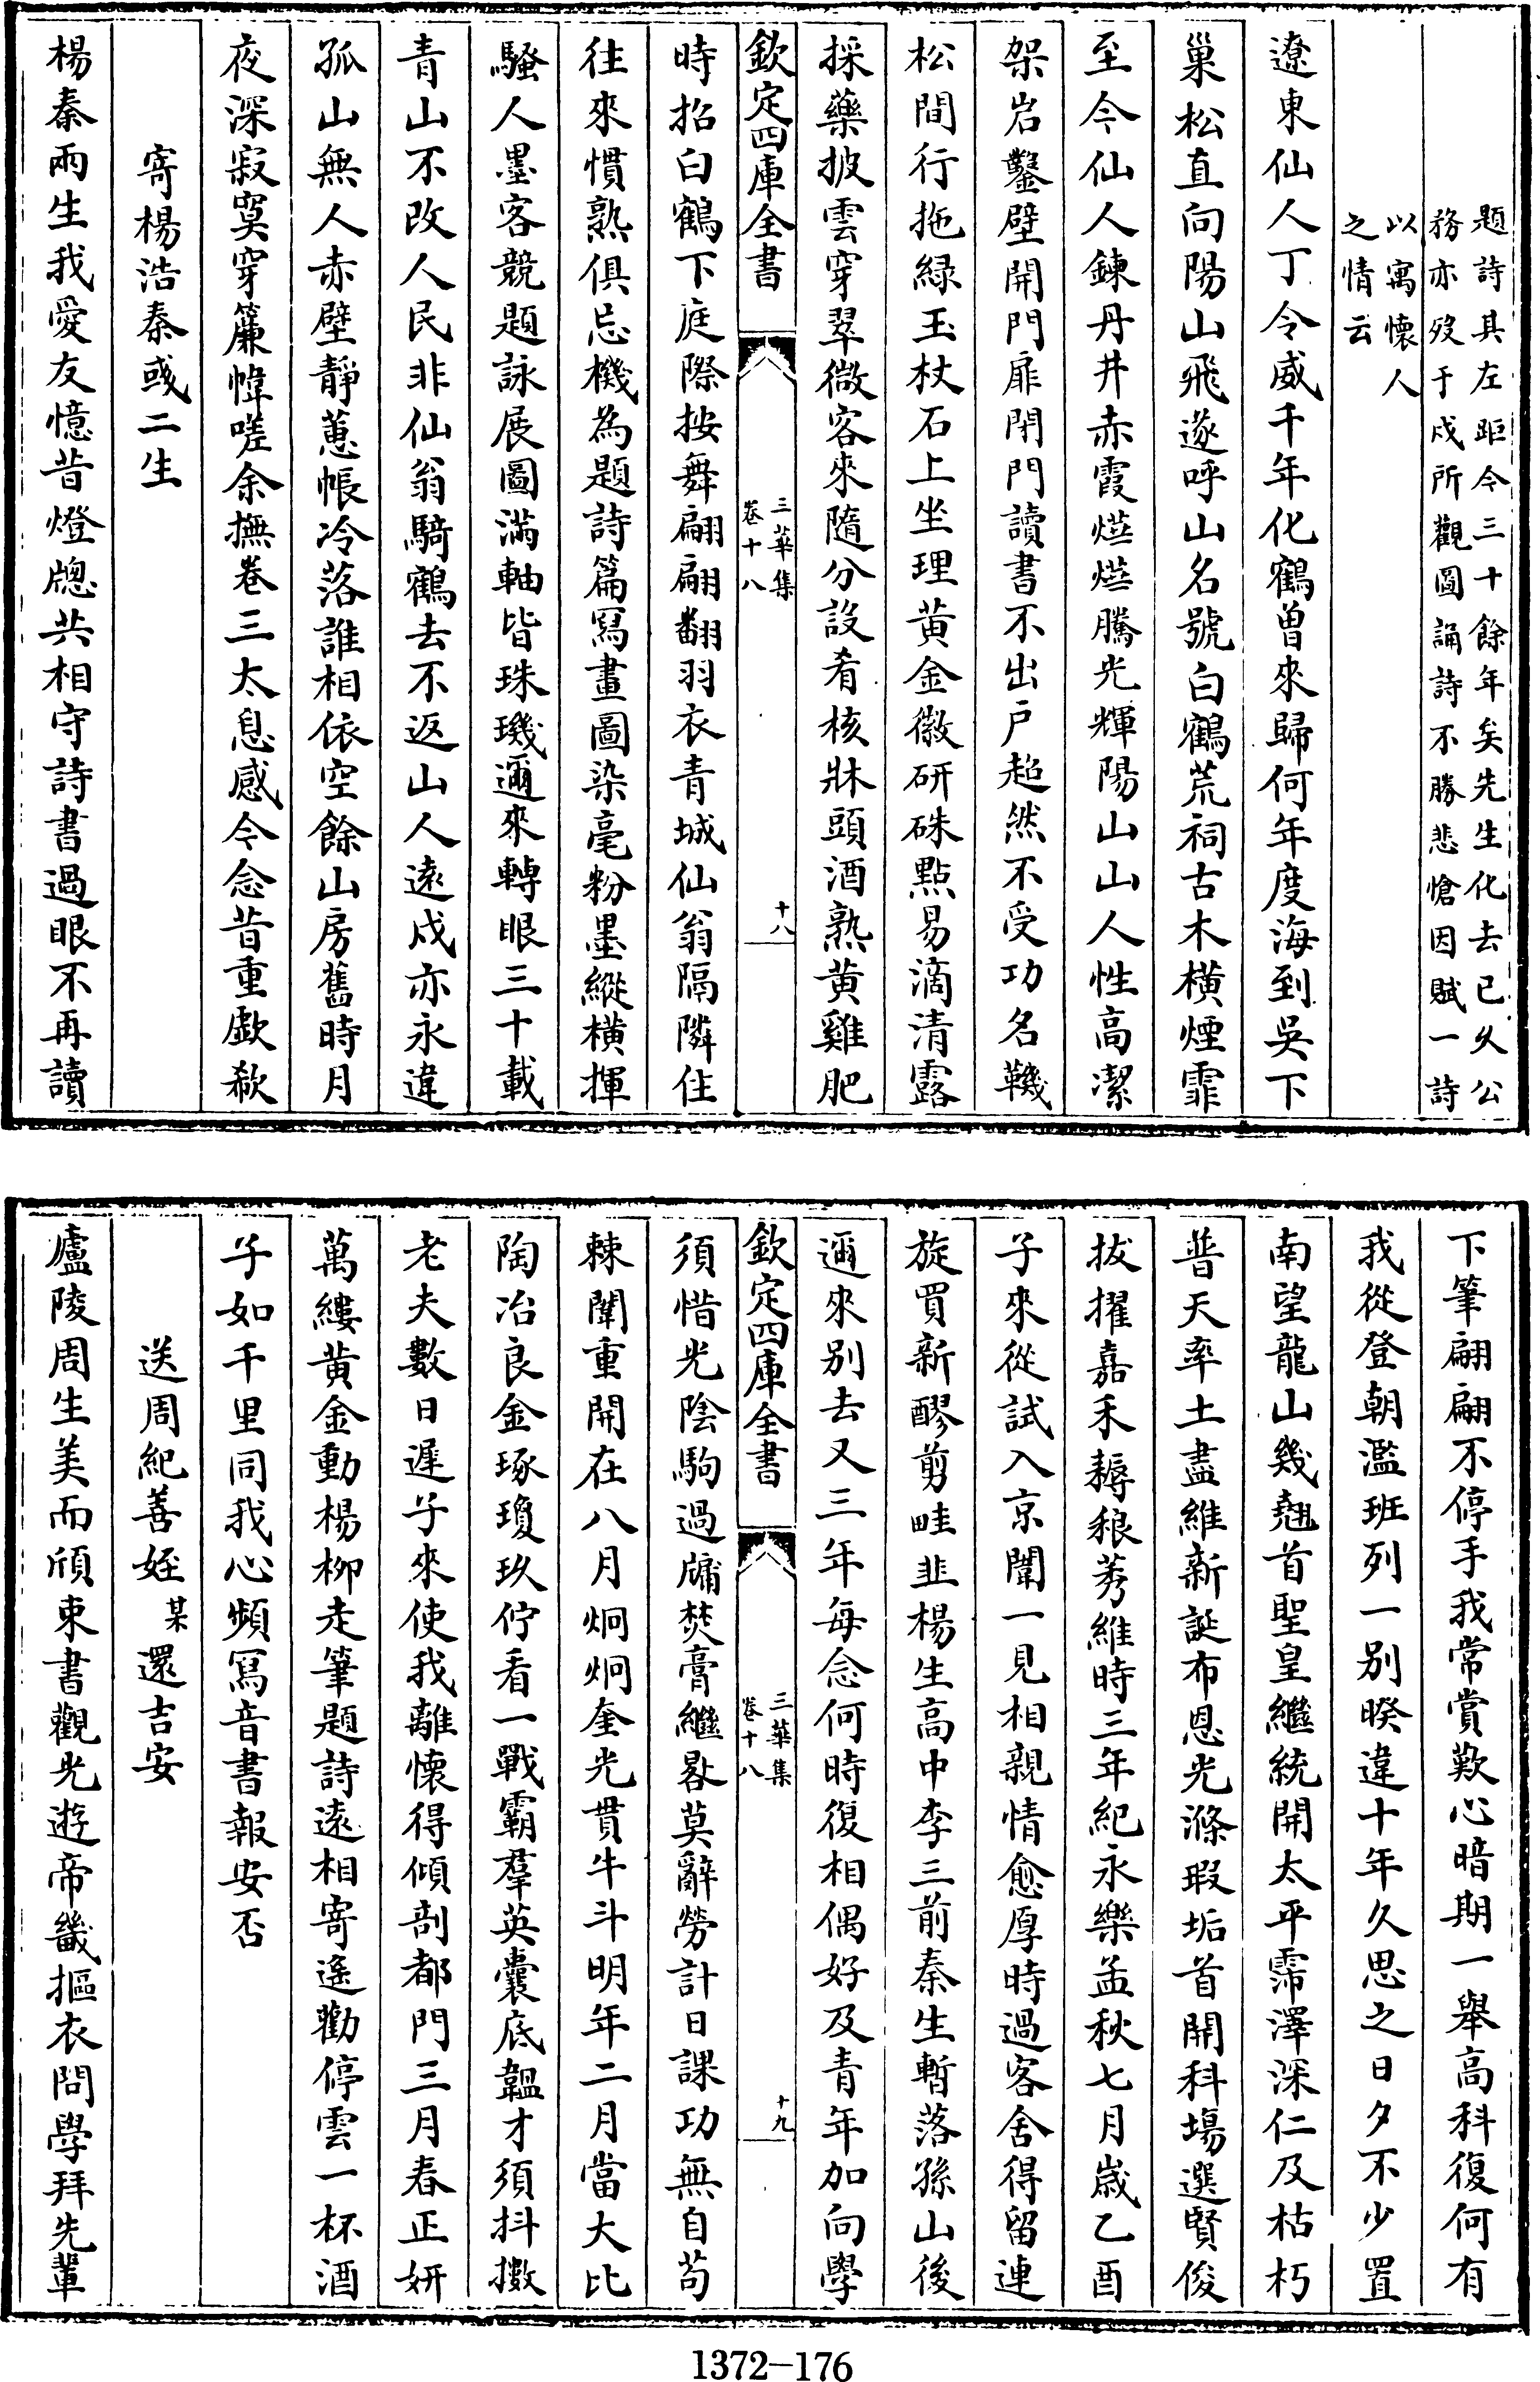 題詩其左距今三十餘年矣先生化去已久公
務亦歿于戍所觀圖誦詩不勝悲愴因賦一詩
以寓懷人
之情云
遼東仙人丁令威千年化鶴曾來歸何年度海到吳下
巢松直向陽山飛遂呼山名號白鶴荒祠古木橫煙霏
至今仙人鍊丹井赤霞㷼㷼騰光輝陽山山人性高潔
架岩鑿壁開門扉閉門讀書不出戶超然不受功名鞿
松間行拖綠玉杖石上坐理黃金徽研硃點易滴清露
採藥披雲穿翠微客來隨分設肴核牀頭酒熟黃雞肥
欽定四庫全書
三華集
卷十八
十八
時招白鶴下庭際按舞翩翩翻羽衣青城仙翁隔隣住
徃來慣熟俱忘機為題詩篇冩畫圖染毫粉墨縱橫揮
騷人墨客競題詠展圖滿軸皆珠璣邇來轉眼三十載
青山不改人民非仙翁騎鶴去不返山人遠戍亦永違
孤山無人赤壁靜蕙帳冷落誰相依空餘山房舊時月
夜深寂寞穿簾幃嗟余撫卷三太息感今念昔重歔欷
寄楊浩秦彧二生
楊秦兩生我愛友憶昔燈牕共相守詩書過眼不再讀
下筆翩翩不停手我常賞歎心暗期一舉高科復何有
我從登朝濫班列一別睽違十年久思之日夕不少置
南望龍山幾翹首聖皇繼統開太平霈澤深仁及枯朽
普天率土盡維新誕布恩光滌瑕垢首開科場選賢俊
拔擢嘉禾耨稂莠維時三年紀永樂孟秋七月歲乙酉
子來從試入京闈一見相親情愈厚時過客舍得留連
旋買新醪剪畦韭楊生高中李三前秦生暫落孫山後
邇來別去又三年每念何時復相偶好及青年加向學
欽定四庫全書
三華集
卷十八
十九
須惜光陰駒過牖焚膏繼晷莫辭勞計日課功無自苟
棘闈重開在八月炯炯奎光貫牛斗明年二月當大比
陶冶良金琢瓊玖佇看一戰霸羣英囊底韞才須抖擻
老夫數日遲子來使我離懷得傾剖都門三月春正妍
萬縷黃金動楊柳走筆題詩遠相寄遙勸停雲一杯酒
子如千里同我心頻冩音書報安否
送周紀善姪某還吉安
廬陵周生美而頎束書觀光遊帝畿摳衣問學拜先輩
1372-176